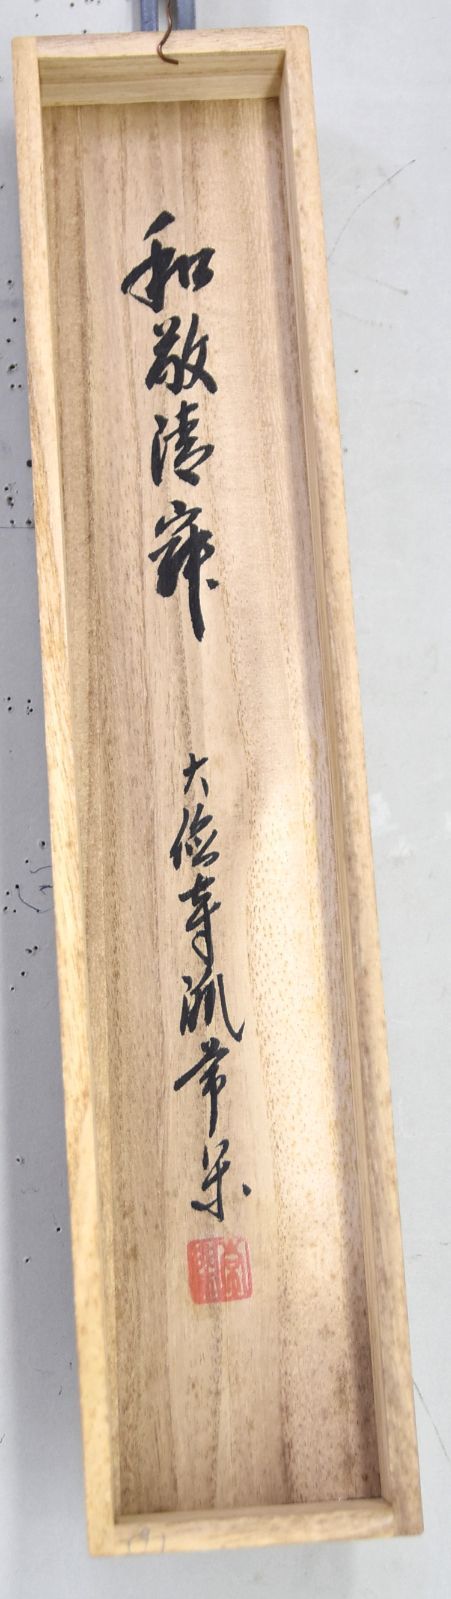 和敬清寂
大徳寺派常栄